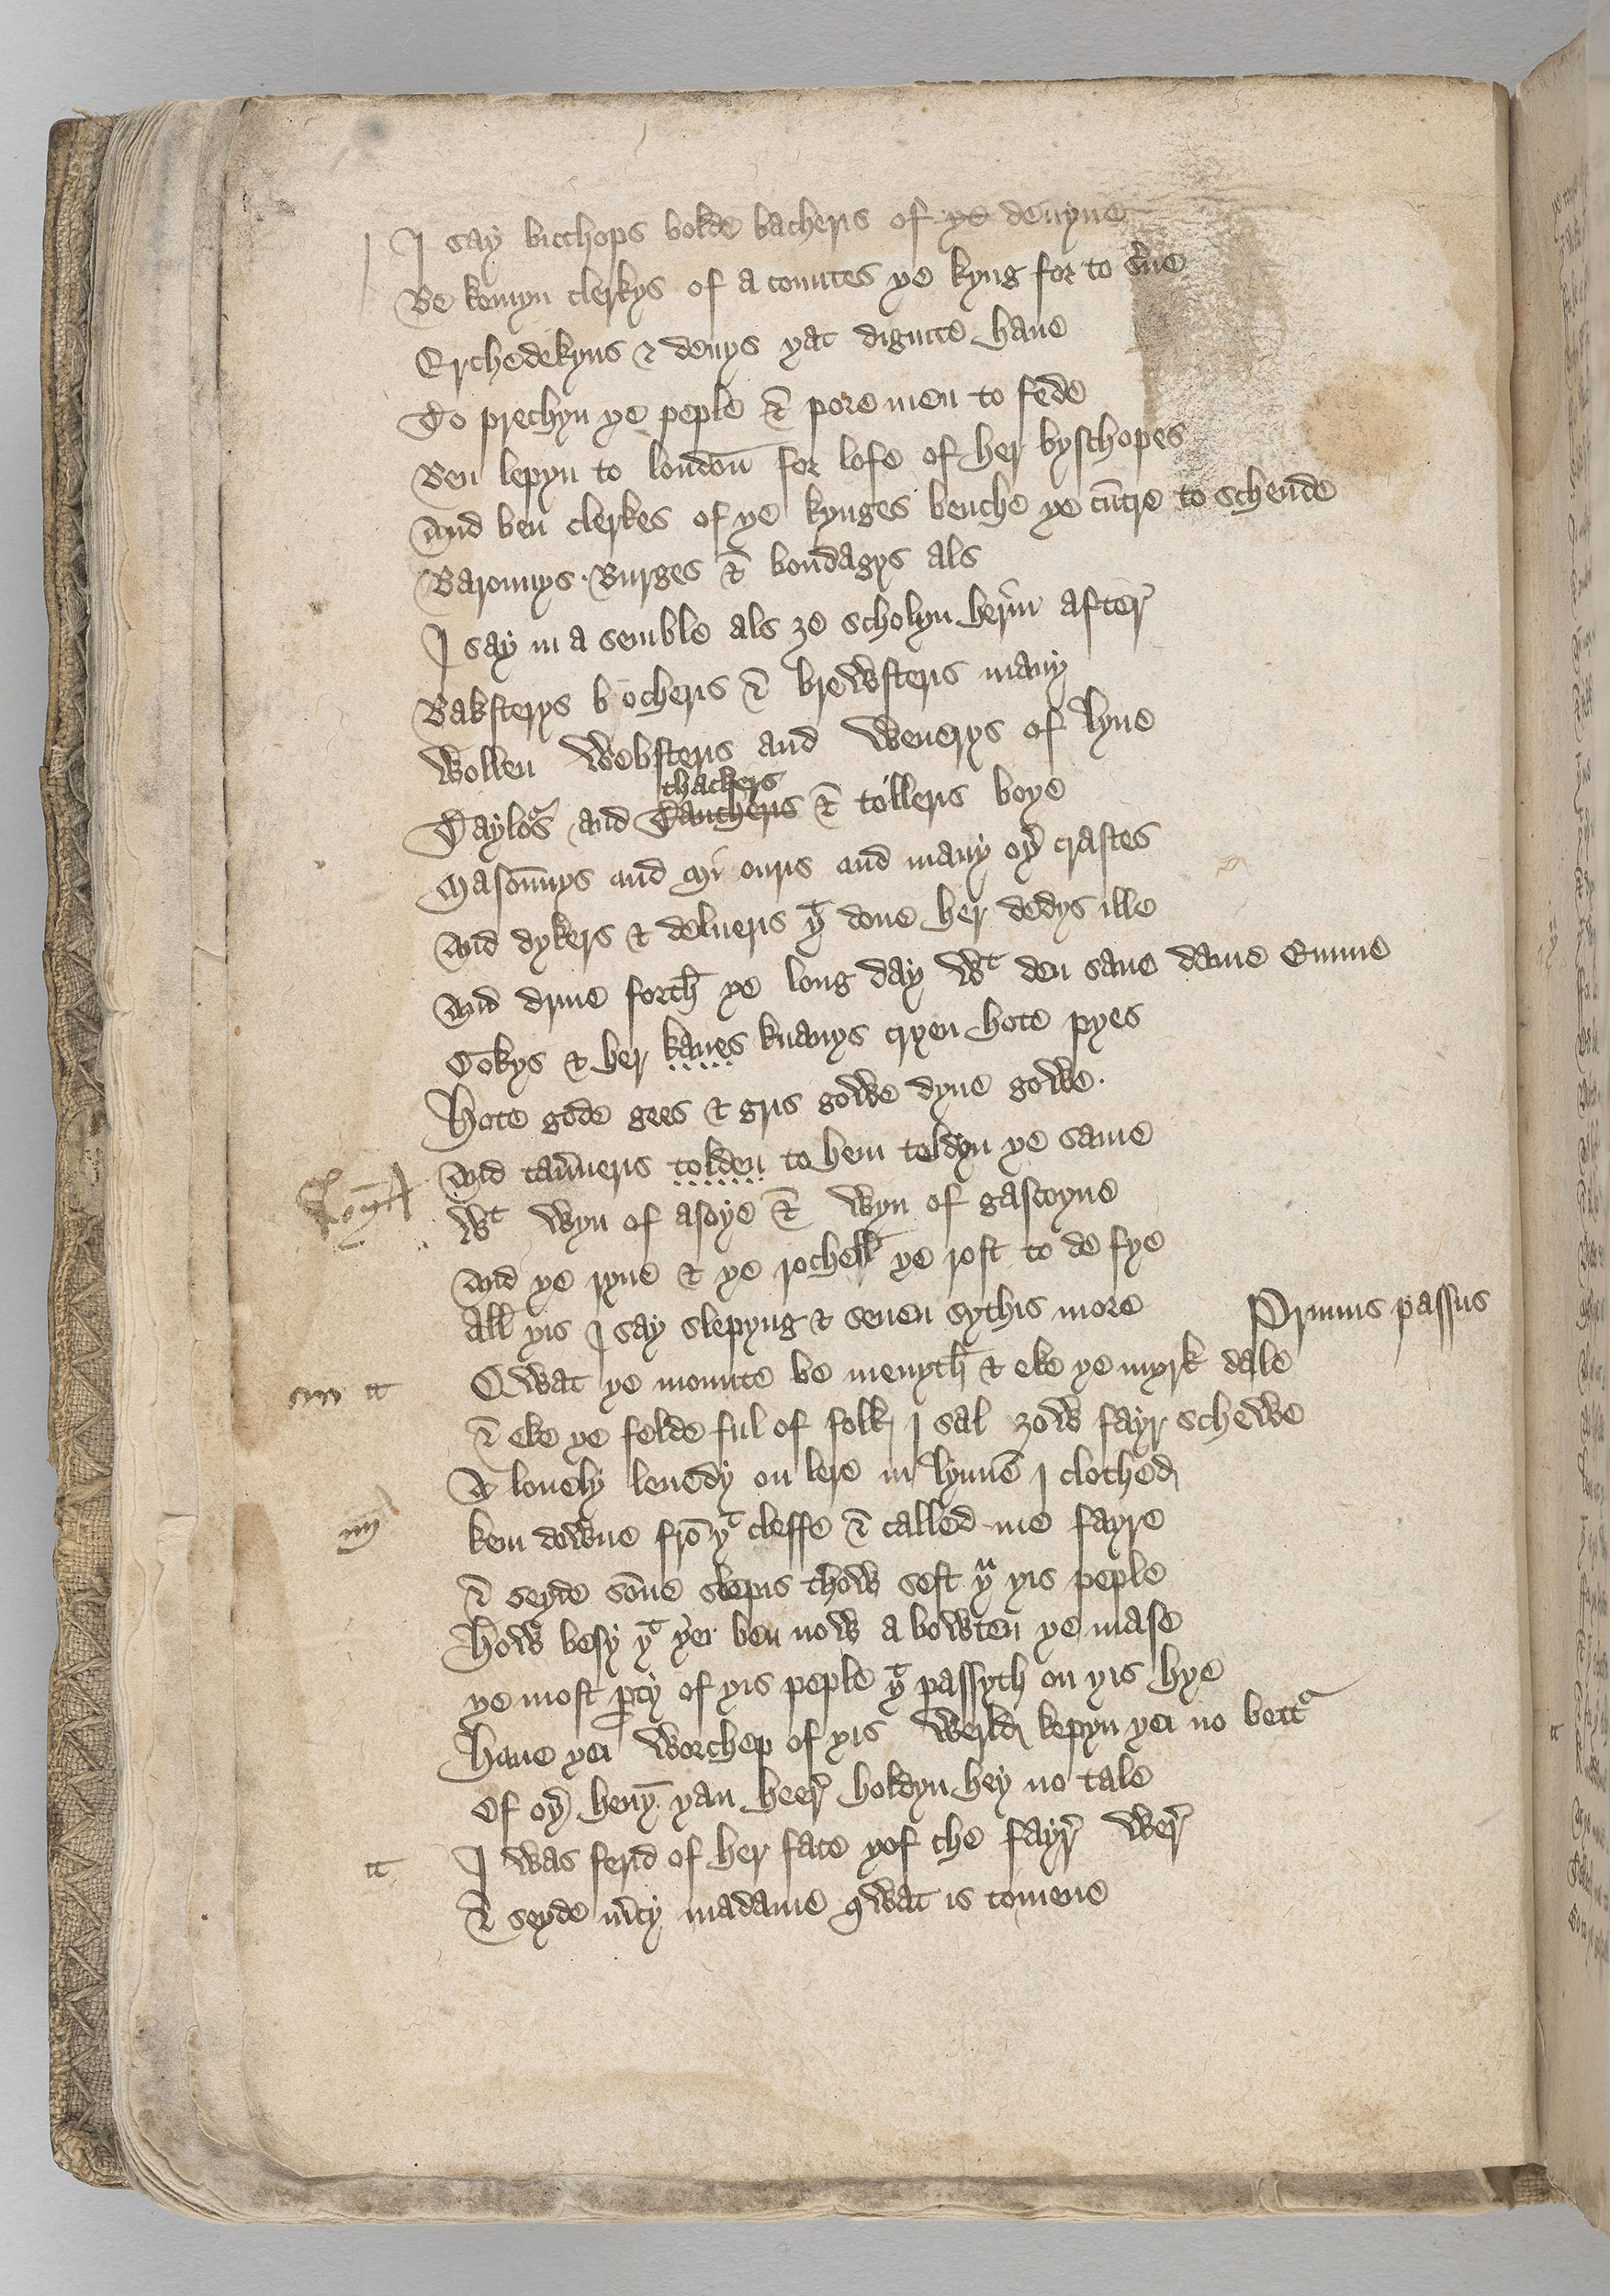 I say bicchops bolde bacheris of ye deuyne
Be komyn clerkys of a countes ye kyng for to s'ue
Erchedekyns & denys yat dignite haue
To prechyn ye peple & pore men to fede
Ben lepyn to londou̅ for lofe of her byschopes
And ben clerkes of ye kynges benche ye cu̅tre to schende
Barounys · Burges & bondagys als
I say in a semble als ze scholyn her'in after'
Baksterys bocheris & brewsteris many
Wollen Websteris and Weuerys of lyne
thackers
Tayloͬs and Tancheris & tolleris boye
Maso̅nys and Mi onris and many oy' craftes
And dykers & delueris yͭ done her dedys ille
And dryue forth ye long day Wͭ deu saue dame Emme
Cokys & her kaues knauys cryen hote pyes
Hote gode gees & gris gowe dyne gowe ·
And tau̅neris tolden to hem toldyn ye same
Wͭ Wyn of asoye & Wyn of gascoyne
And ye ryne & ye rochell ye rost to de fye
All yis I say slepyng & seuen sythis more
Primus passus
Qwat ye mounte be menyth & eke ye myrk dale
& eke ye felde ful of folk I sal zow fayr schewe
A louely leuedy on lere in lynne̅ I clothed
kem downe fro̅ yͭ cleffe & called me fayre
& seyde so̅ne slepis thow sest yͧ yis peple
How besy yͭ yei ben now a bowten ye mase
ye most p̱ty of yis peple yͭ passyth on yis hye
Haue yei worchep of yis werld kepyn yei no bettͬ
Of oy' heuy̅ yan heer' holdyn hey no tale
I was ferid of her face yof che fayr' wer'
& seyde m̅cy madame qwat is to mene